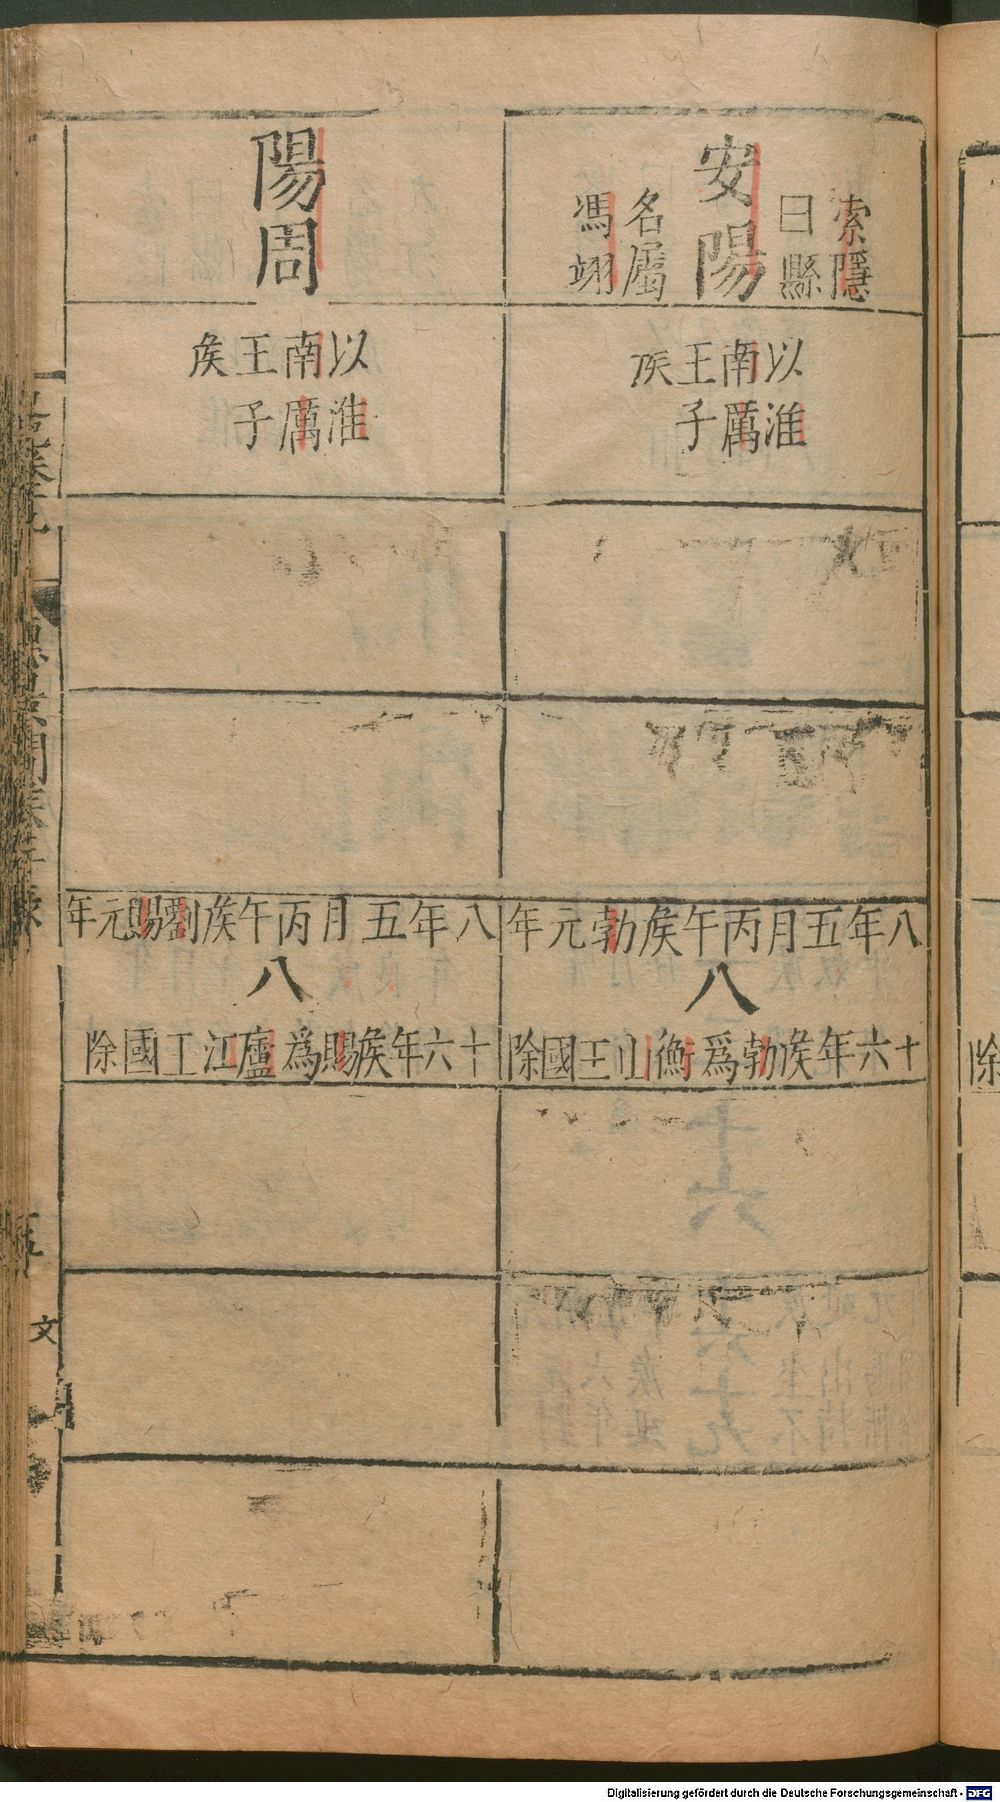 索隱
曰縣
安陽
名屬
馮翊
以淮
南厲
王子
侯
八年五月丙午侯勃元年
八
十六年侯勃爲衡山王國除
陽周
以淮
南厲
王子
侯
八年五月丙午侯劉賜元年
八
十六年侯賜爲廬江王國除
文
除
Digitalisierung gefördert durch die Deutsche Forschungsgemeinschaft - DFG